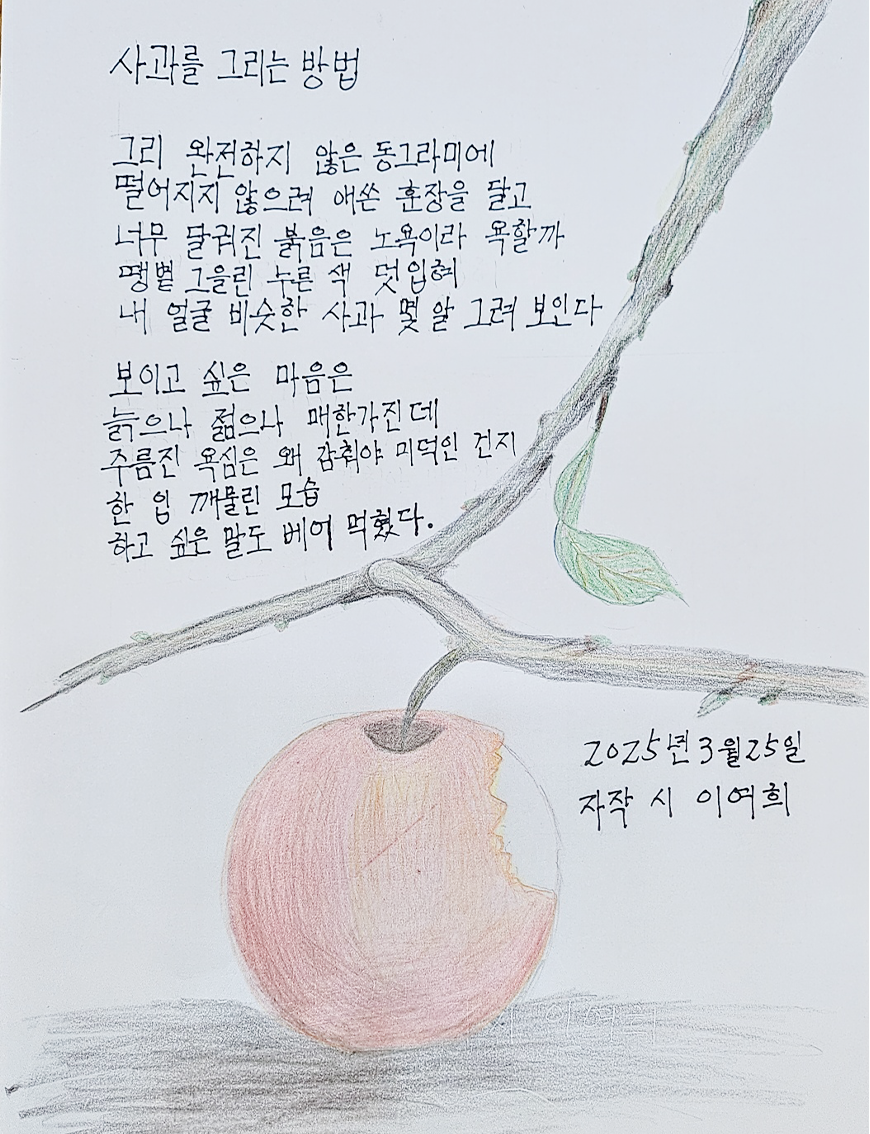 사과를 그리는 방법
그리 완전하지 않은 동그라미에
떨어지지 않으려 애쓴 훈장을 달고
너무 달궈진 붉음은 노욕이라 욕할까
땡볕 그을린 누른 색 덧입혀
내 얼굴 비슷한 사과 몇 알 그려 보인다
보이고 싶은 마음은
늙으나 젊으나 매한가진데
주름진 욕심은 왜 감춰야 미덕인 건지
한 입 깨물린 모습
하고 싶은 말도 베어 먹혔다.
2025년 3월 25일
자작 시 이여희
이여희